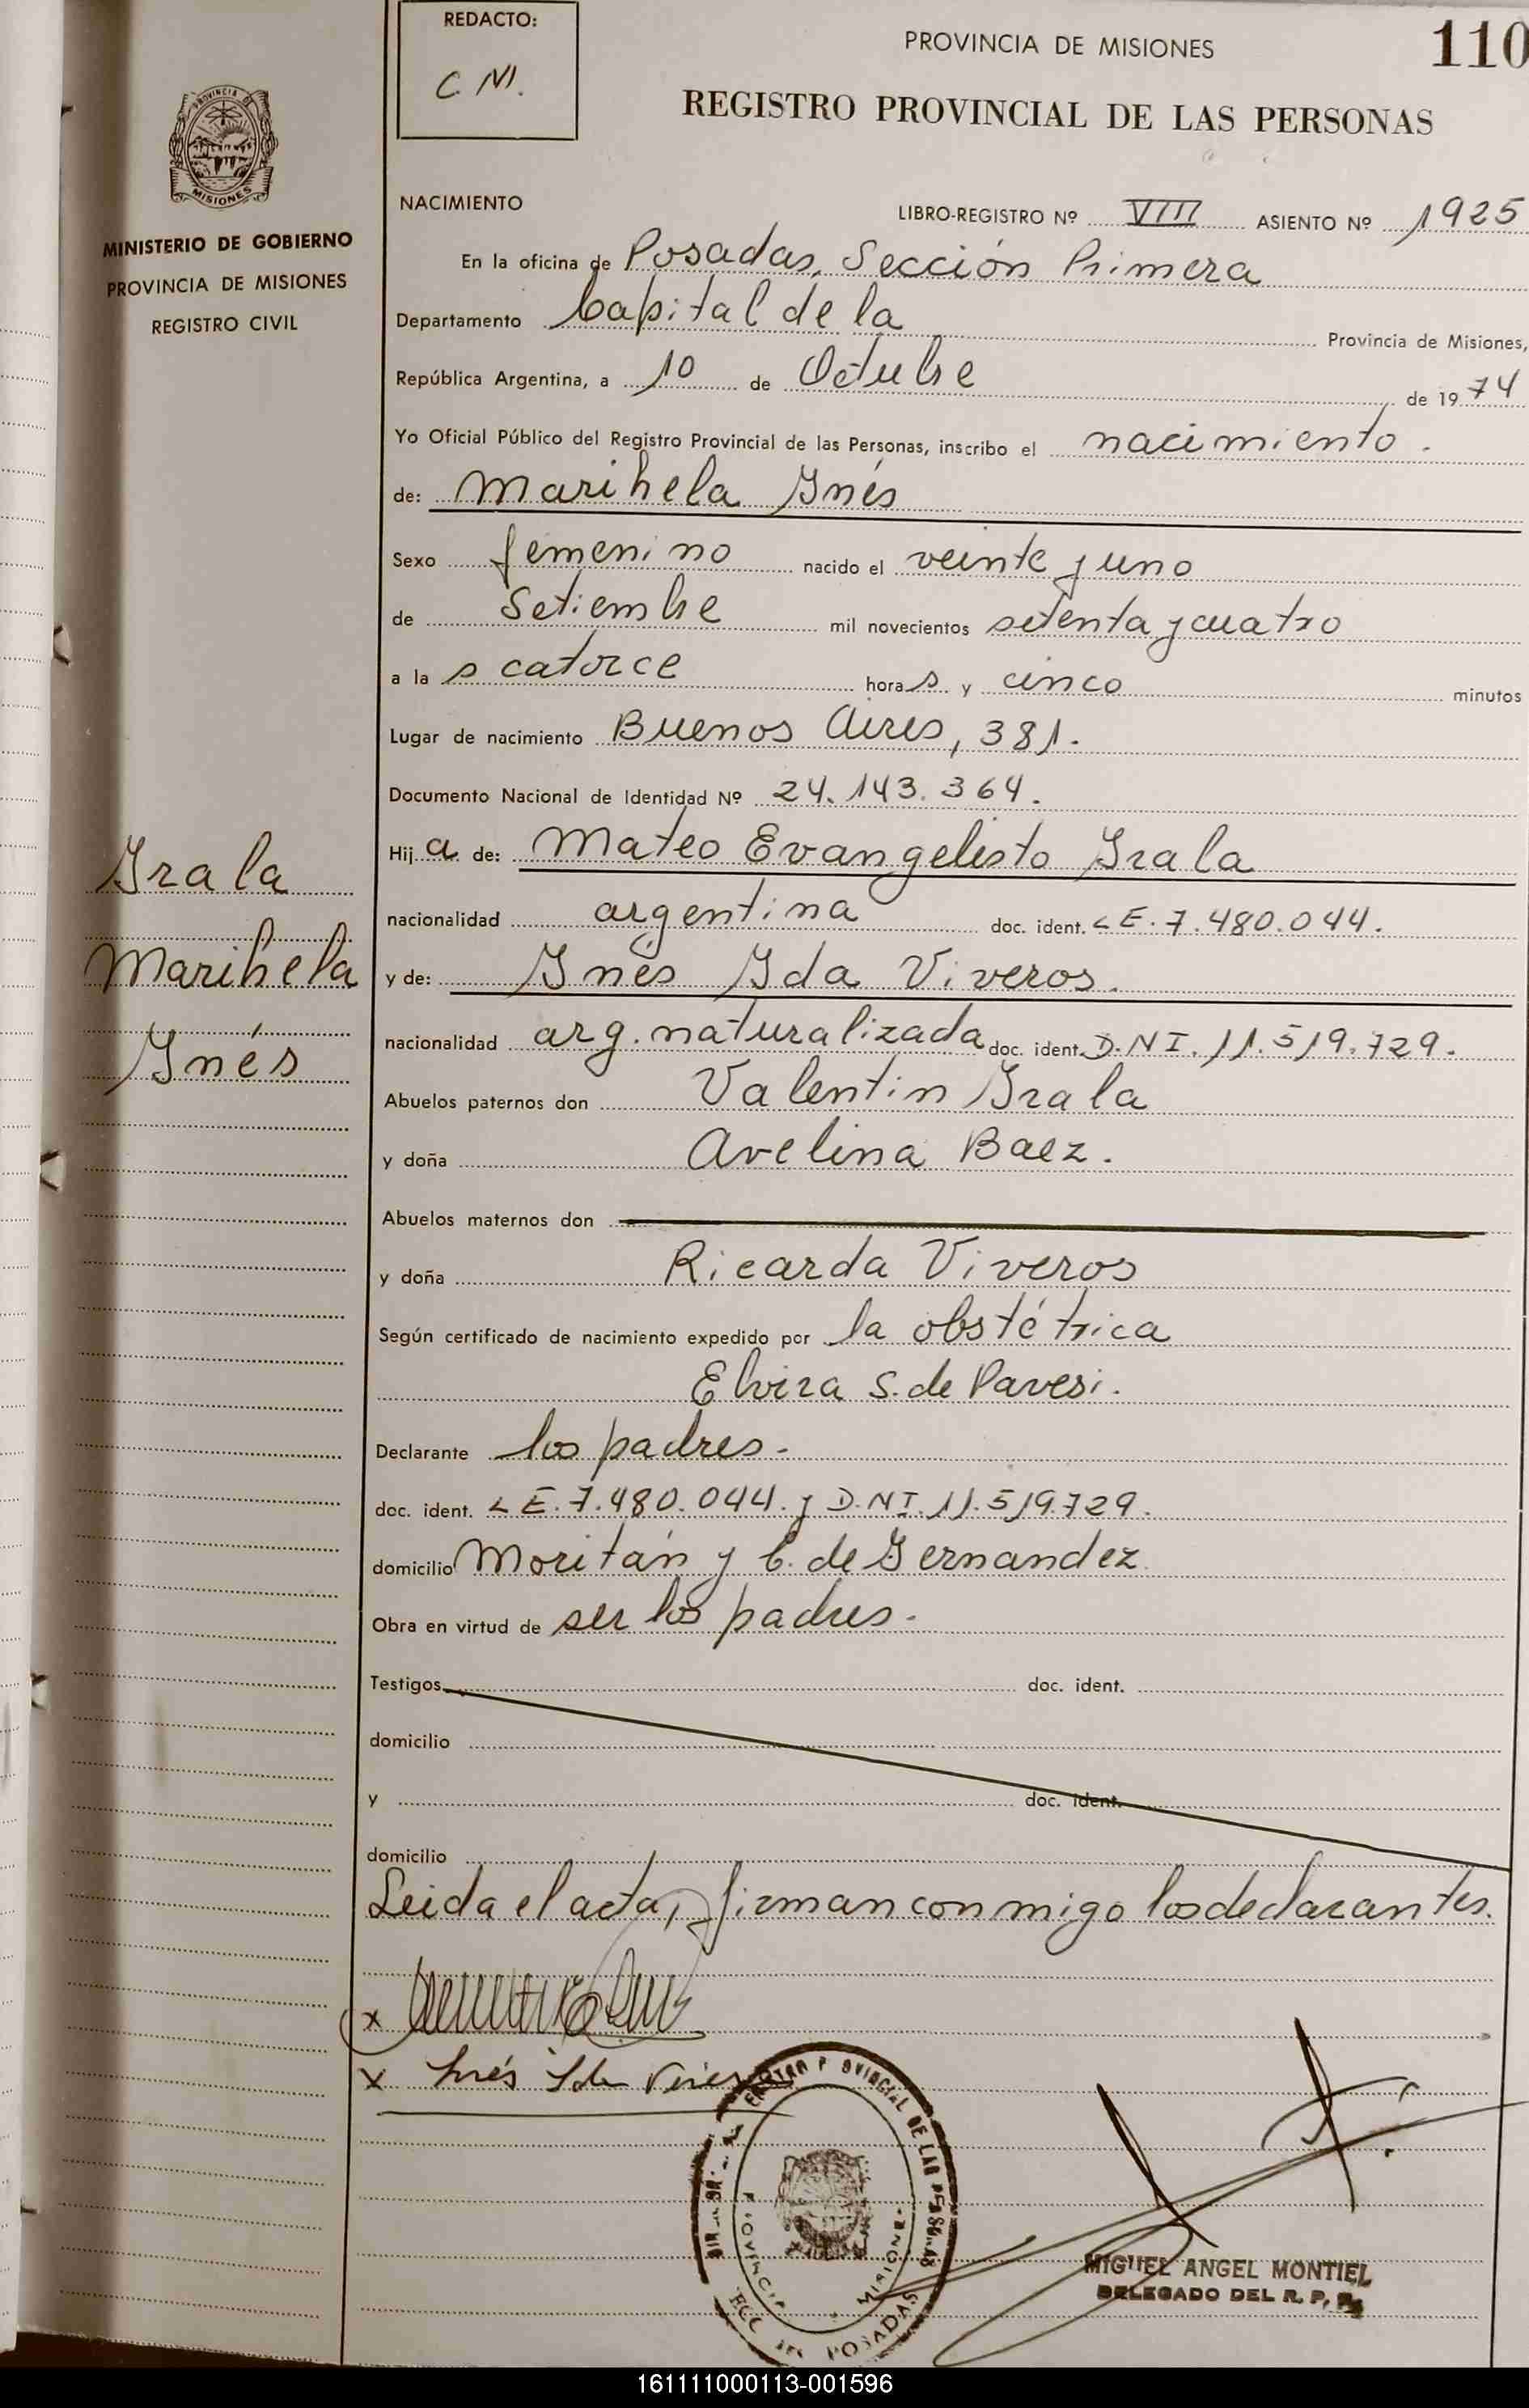 REDACTO:
C M.
PROVINCIA DE MISIONES
110
REGISTRO PROVINCIAL DE LAS PERSONAS
MISIONES
MINISTERIO DE GOBIERNO
PROVINCIA DE MISIONES
REGISTRO CIVIL
NACIMIENTO
LIBRO-REGISTRO Nº VIII ASIENTO Nº 1925
En la oficina de Posadas, Sección Primera
Departamento Capital de la Provincia de Misiones,
República Argentina, a 10 de Octubre de 1974
Yo Oficial Público del Registro Provincial de las Personas, inscribo el nacimiento.
de: Marihela Ynés
Sexo femenino nacido el veinte y uno
de Setiembre mil novecientos setenta y cuatro
a las catorce horas y cinco minutos
Lugar de nacimiento Buenos Aires, 381.
Documento Nacional de Identidad Nº 24.143.364.
Hija de: Mateo Evangelisto Yrala
nacionalidad argentina doc. ident. LE. 7.480.044.
y de: Ynés Yda Viveros.
nacionalidad arg. naturalizada doc. ident. D.NI. 11.519.729.
Abuelos paternos don Valentin Yrala
y doña Avelina Baez.
Abuelos maternos don
y doña Ricarda Viveros
Según certificado de nacimiento expedido por la obstétrica
Elvira S. de Pavesi.
Declarante los padres.
doc. ident. LE. 7.480.044. y D.NI. 11.519.729.
domicilio Moritán y C. de Gernandez
Obra en virtud de ser los padres.
Testigos doc. ident.
domicilio
y doc. ident.
domicilio
Leida el acta, firman conmigo los declarantes.
x
x Inés Ida
Yrala
Marihela
Ynés
MIGUEL ANGEL MONTIEL
DELEGADO DEL R. P. P.
161111000113-001596